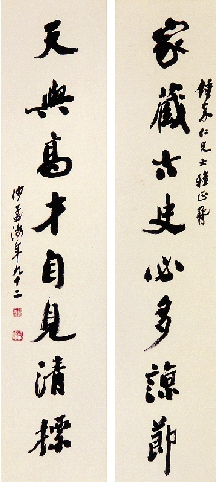 家藏古史必多諒節
仁兄
天與高才自見清標
沙孟海年九十二